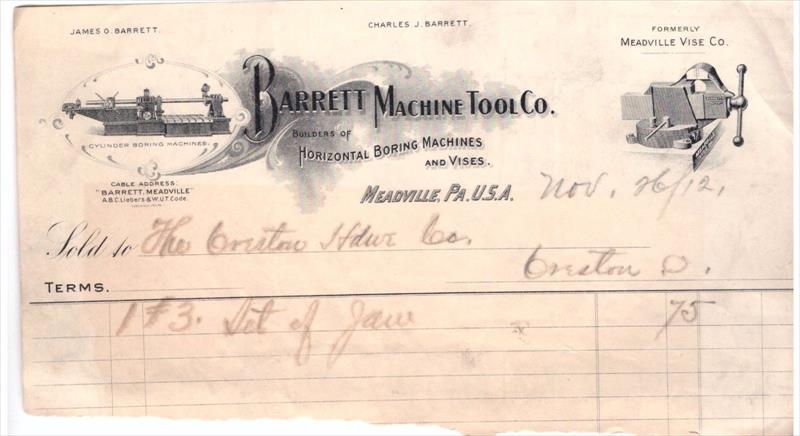 JAMES O. BARRETT.
CHARLES J. BARRETT.
FORMERLY
MEADVILLE VISE CO.
BARRETT MACHINE TOOL CO.
BUILDERS OF
HORIZONTAL BORING MACHINES
AND VISES.
CYLINDER BORING MACHINES.
CABLE ADDRESS:
"BARRETT, MEADVILLE"
A.B.C. Liebers & W.U.T. Code.
MEADVILLE, PA. U.S.A.
Nov. 26/12.
Sold to The Creston Hdwe Co.
Creston O.
TERMS.
1 #3. Set of Jaw 75